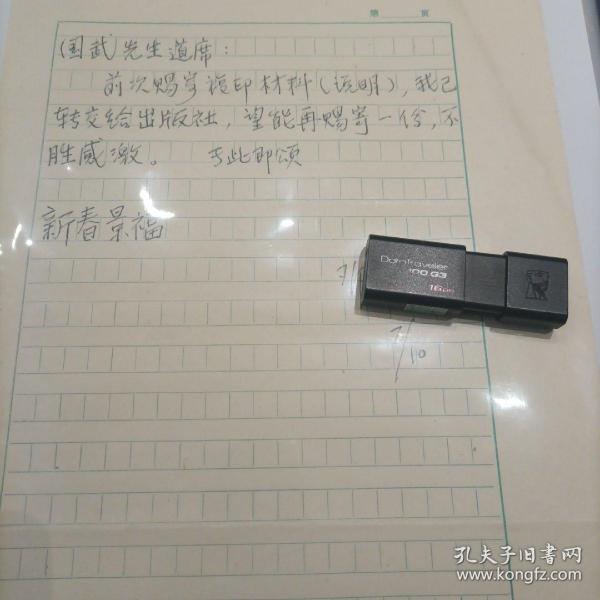 第 页
国武先生道席：
前次赐寄複印材料（说明），我已
转交给出版社，望能再赐寄一份，不
胜感激。 专此即颂
新春景福
DataTraveler
100 G3
16GB
7/10
孔夫子旧书网
www.kongfz.com